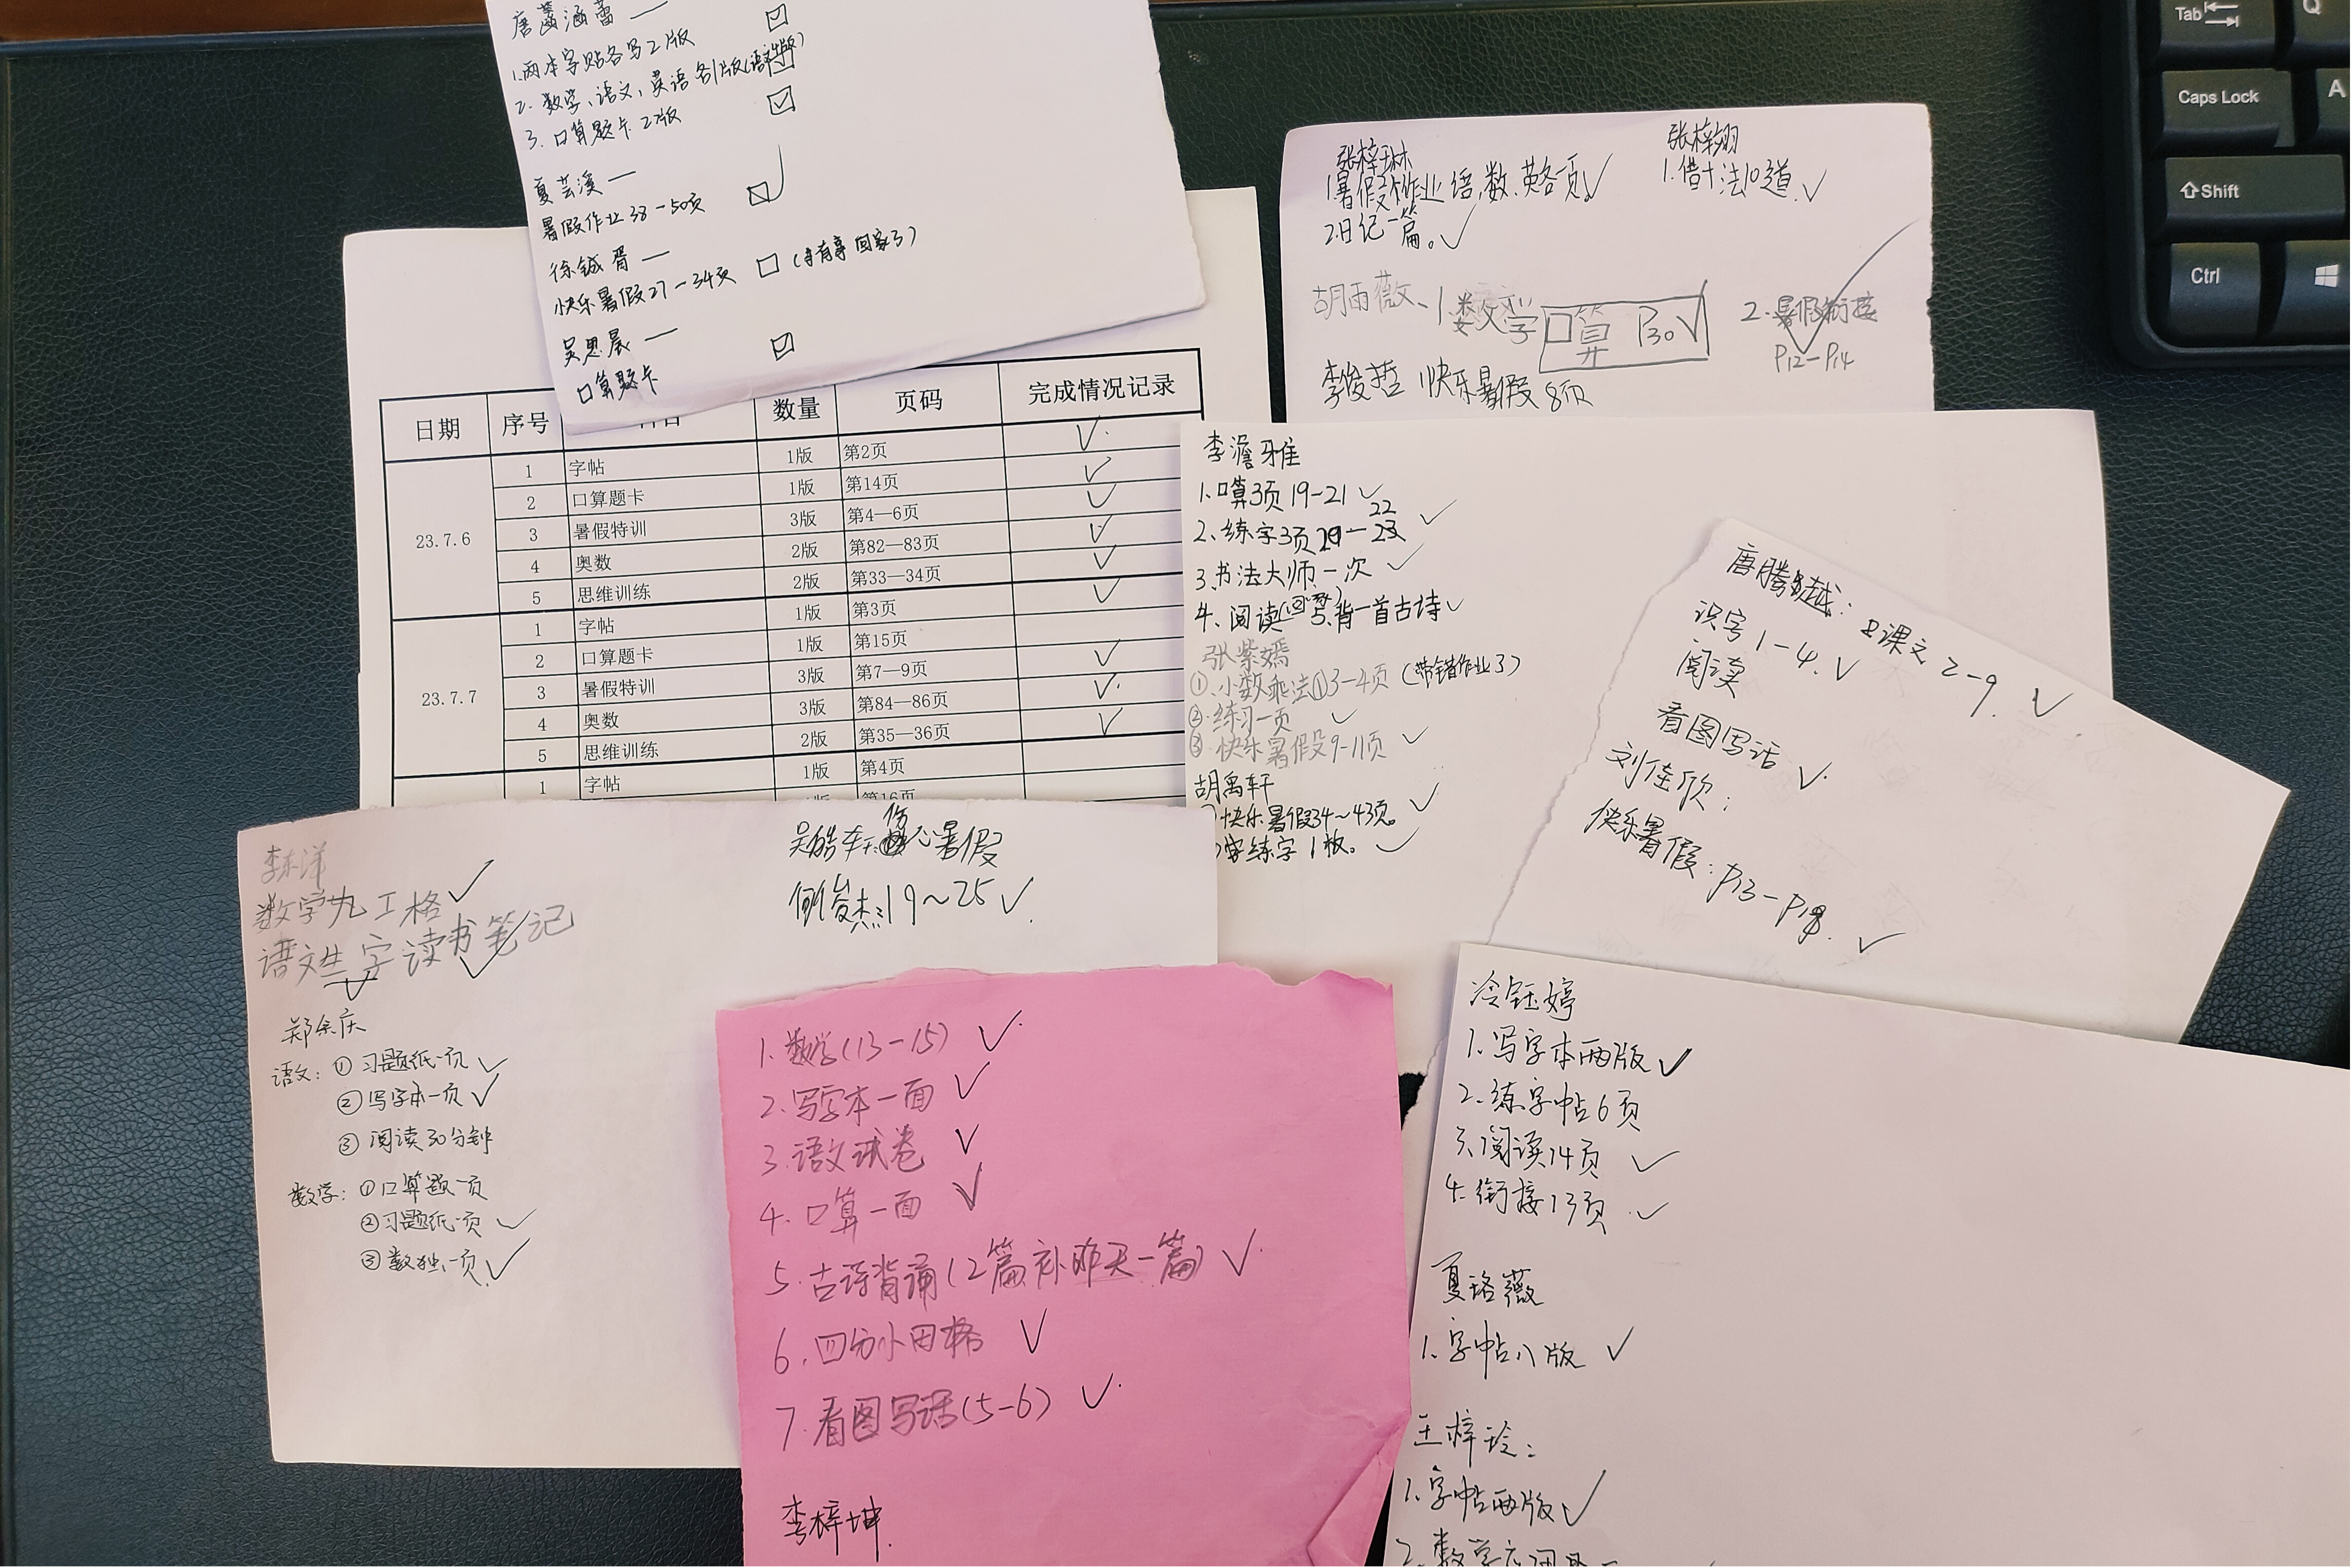 唐茜涵蕾 —
1.两本字贴各写2版
2.数学、语文、英语各1版(语文4版)
3.口算题卡2版
夏芸溪 —
暑假作业38-50页
徐铖胥 —
快乐暑假27-34页 (有事回家了)
吴思晨 —
口算题卡
张梓琳
1.暑假作业语,数,英各一页
2.日记一篇。
张梓翊
1.借十法10道
胡雨薇-1 口算 P30
2.暑假衔接
P12-P14
李俊哲 快乐暑假8页
日期 序号 数量 页码 完成情况记录
23.7.6
1 字帖 1版 第2页
2 口算题卡 1版 第14页
3 暑假特训 3版 第4—6页
4 奥数 2版 第82—83页
5 思维训练 2版 第33—34页
23.7.7
1 字帖 1版 第3页
2 口算题卡 1版 第15页
3 暑假特训 3版 第7—9页
4 奥数 3版 第84—86页
5 思维训练 2版 第35—36页
1 字帖 1版 第4页
第16页
李濬雅
1.口算3页19-21
2.练字3页 22
3.书法大师一次
4.阅读 背一首古诗
张紫嫣
①.小数乘法①3-4页(带错作业了)
②.练习一页
③.快乐暑假9-11页
胡禹轩
快乐暑假34~43页。
练字1板。
唐腾越: 课文2-9.
识字1-4.
阅读
看图写话
刘佳欣:
快乐暑假:P13-P18.
李东洋
数学九工格
语文生字读书笔记
郑余庆
语文:①习题纸一页
②写字本一页
③阅读30分钟
数学:①口算题一页
②习题纸一页
③数独一页
暑假
19~25
1.数学(13-15)
2.写字本一面
3.语文试卷
4.口算一面
5.古诗背诵(2篇补昨天一篇)
6.四分小田格
7.看图写话(5-6)
李梓坤
冷钰婷
1.写字本两版
2.练字帖6页
3.阅读14页
4.衔接13页
夏珞薇
1.字帖八版
王梓玲:
1.字帖两版
2.数学
Tab
Q
Caps Lock
A
Shift
Ctrl